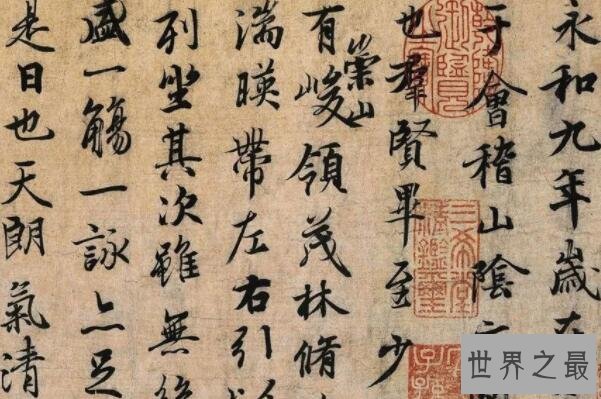 永和九年歲在
于會稽山陰
也羣賢畢至少
有崇山峻領茂林脩
湍暎帶左右引以
列坐其次雖無絲
盛一觴一詠亦足
是日也天朗氣清
三希堂精鑑璽
世界之最